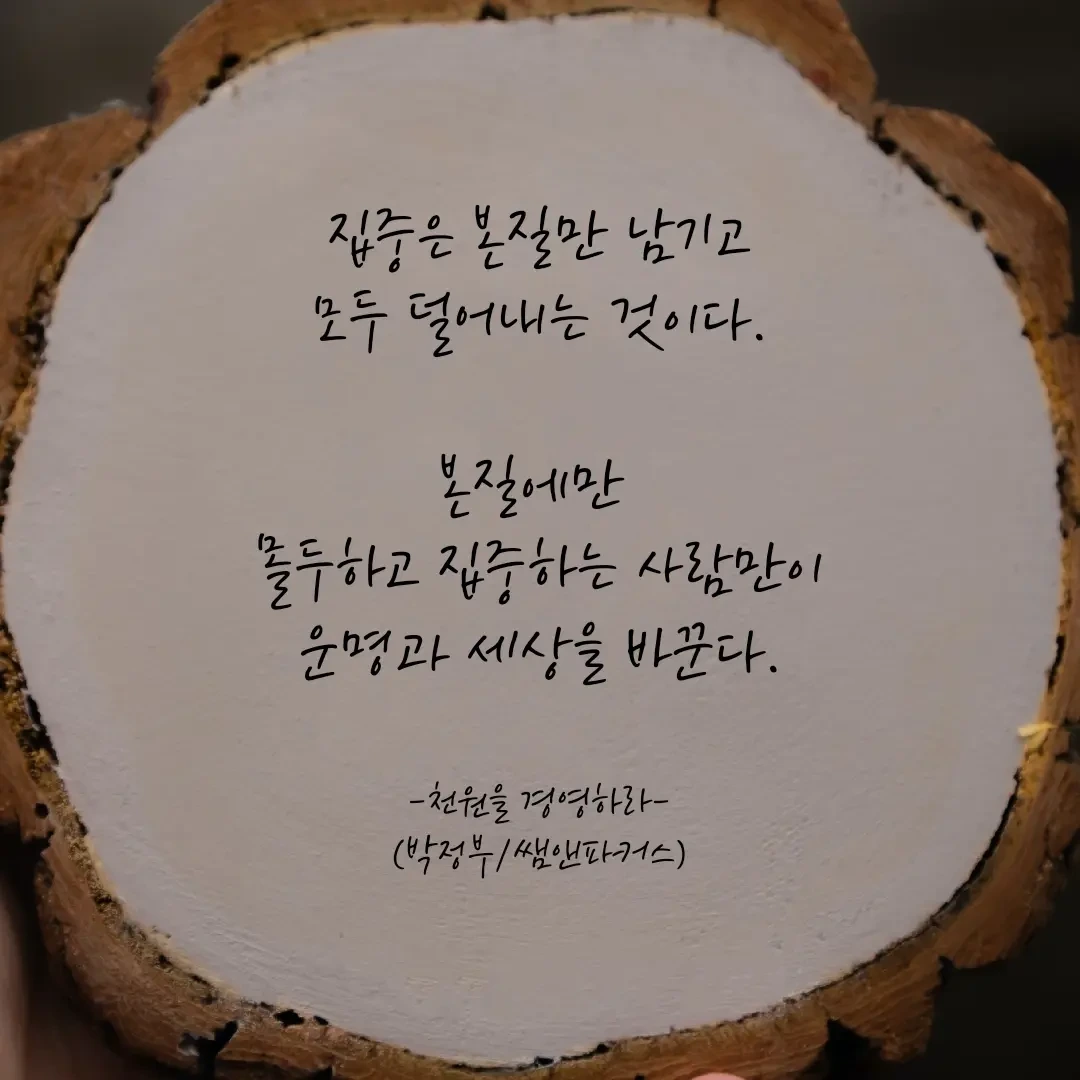 집중은 본질만 남기고
모두 덜어내는 것이다.
본질에만
몰두하고 집중하는 사람만이
운명과 세상을 바꾼다.
-천원을 경영하라-
(박정부/쌤앤파커스)